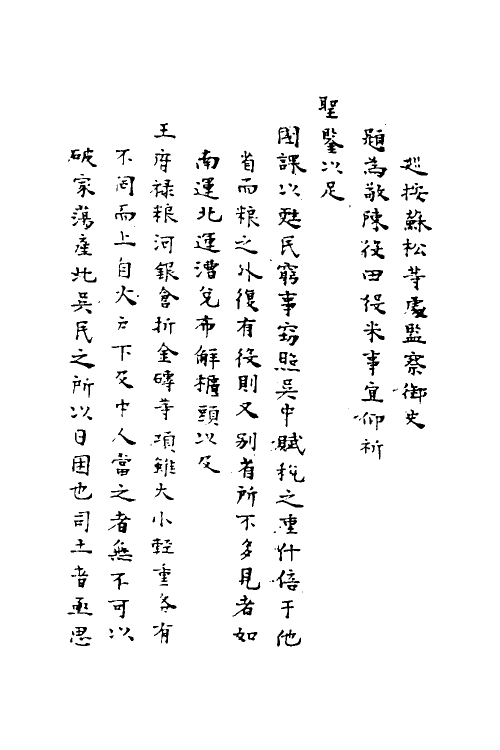 巡按蘇松等處監察御史
題為敬陳役田役米事宜仰祈
聖鑒以足
國課以甦民窮事竊照吳中賦稅之重什倍于他
省而粮之外復有役則又别省所不多見者如
南運北運漕兌布解櫃頭以及
王府禄粮河銀倉折金磚等項雖大小輕重各有
不同而上自大户下及中人當之者無不可以
破家蕩產此吳民之所以日困也司土者亟思